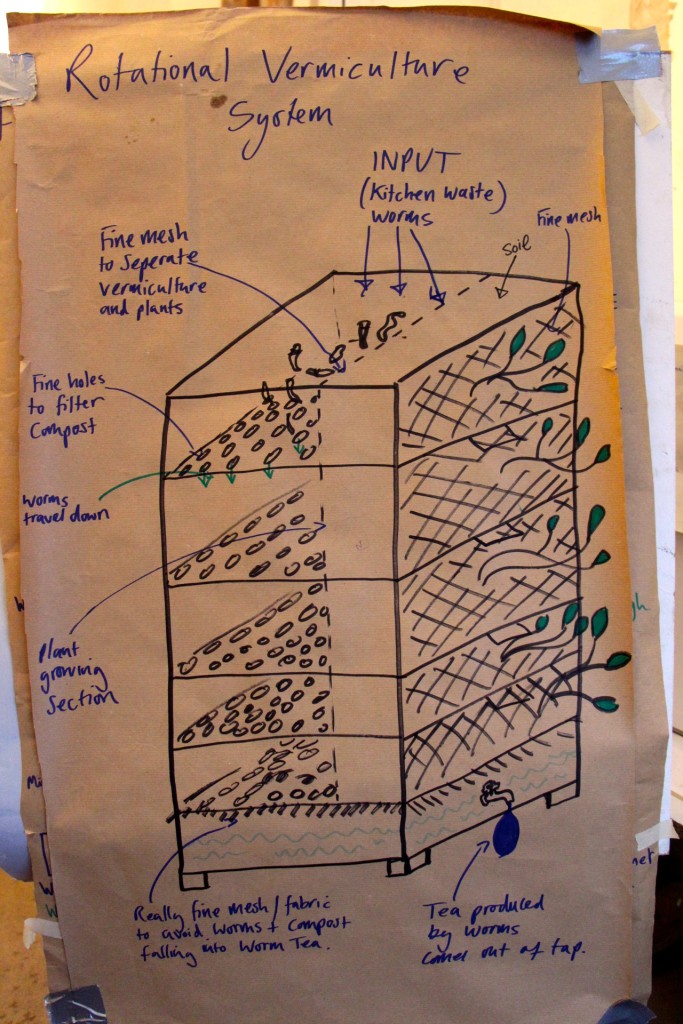 Rotational Vermiculture
System
INPUT
(Kitchen waste)
worms
Fine mesh
soil
Fine mesh
to Seperate
vermiculture
and plants
Fine holes
to filter
compost
worms
travel down
Plant
growing
Section
Really fine mesh/fabric
to avoid worms + compost
falling into Worm Tea.
Tea produced
by worms
comes out of tap.